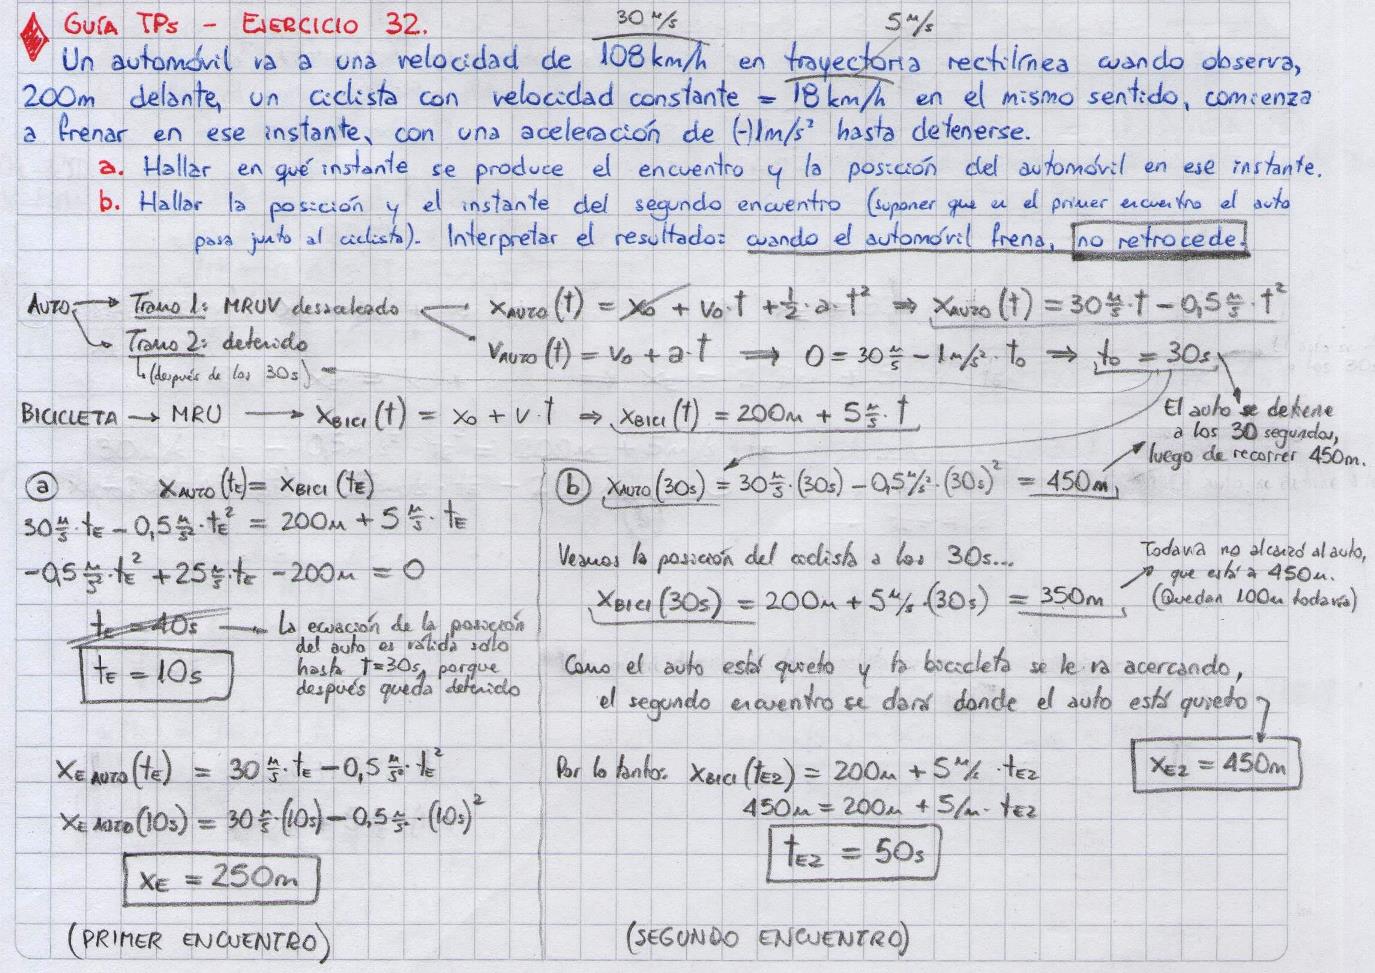 GUÍA TPs - EJERCICIO 32.
30 m/s
5 m/s
Un automóvil va a una velocidad de 108 km/h en trayectoria rectilínea cuando observa,
200m delante, un ciclista con velocidad constante = 18 km/h en el mismo sentido, comienza
a frenar en ese instante, con una aceleración de (-)1m/s² hasta detenerse.
a. Hallar en qué instante se produce el encuentro y la posición del automóvil en ese instante.
b. Hallar la posición y el instante del segundo encuentro (suponer que en el primer encuentro el auto
pasa junto al ciclista). Interpretar el resultado: cuando el automóvil frena, no retrocede.
AUTO → Tramo 1: MRUV desacelerado
x_AUTO(t) = x₀ + v₀·t + ½·a·t² ⇒ x_AUTO(t) = 30 m/s·t - 0,5 m/s·t²
Tramo 2: detenido
(después de los 30s)
v_AUTO(t) = v₀ + a·t ⇒ 0 = 30 m/s - 1m/s²·t₀ ⇒ t₀ = 30s
El auto se detiene
a los 30 segundos,
luego de recorrer 450m.
BICICLETA → MRU → x_BICI(t) = x₀ + v·t ⇒ x_BICI(t) = 200m + 5 m/s·t
a
x_AUTO(t_E) = x_BICI(t_E)
30 m/s·t_E - 0,5 m/s²·t_E² = 200m + 5 m/s·t_E
-0,5 m/s²·t_E² + 25 m/s·t_E - 200m = 0
t_E = 40s → La ecuación de la posición
del auto es válida sólo
hasta t=30s, porque
después queda detenido
t_E = 10s
x_E AUTO(t_E) = 30 m/s·t_E - 0,5 m/s²·t_E²
x_E AUTO(10s) = 30 m/s·(10s) - 0,5 m/s²·(10s)²
x_E = 250m
(PRIMER ENCUENTRO)
b x_AUTO(30s) = 30 m/s·(30s) - 0,5 m/s²·(30s)² = 450m
Veamos la posición del ciclista a los 30s...
x_BICI(30s) = 200m + 5 m/s·(30s) = 350m
Todavía no alcanzó al auto,
que está a 450m.
(Quedan 100m todavía)
Como el auto está quieto y la bicicleta se le va acercando,
el segundo encuentro se dará donde el auto está quieto
x_E2 = 450m
Por lo tanto: x_BICI(t_E2) = 200m + 5 m/s·t_E2
450m = 200m + 5/m·t_E2
t_E2 = 50s
(SEGUNDO ENCUENTRO)